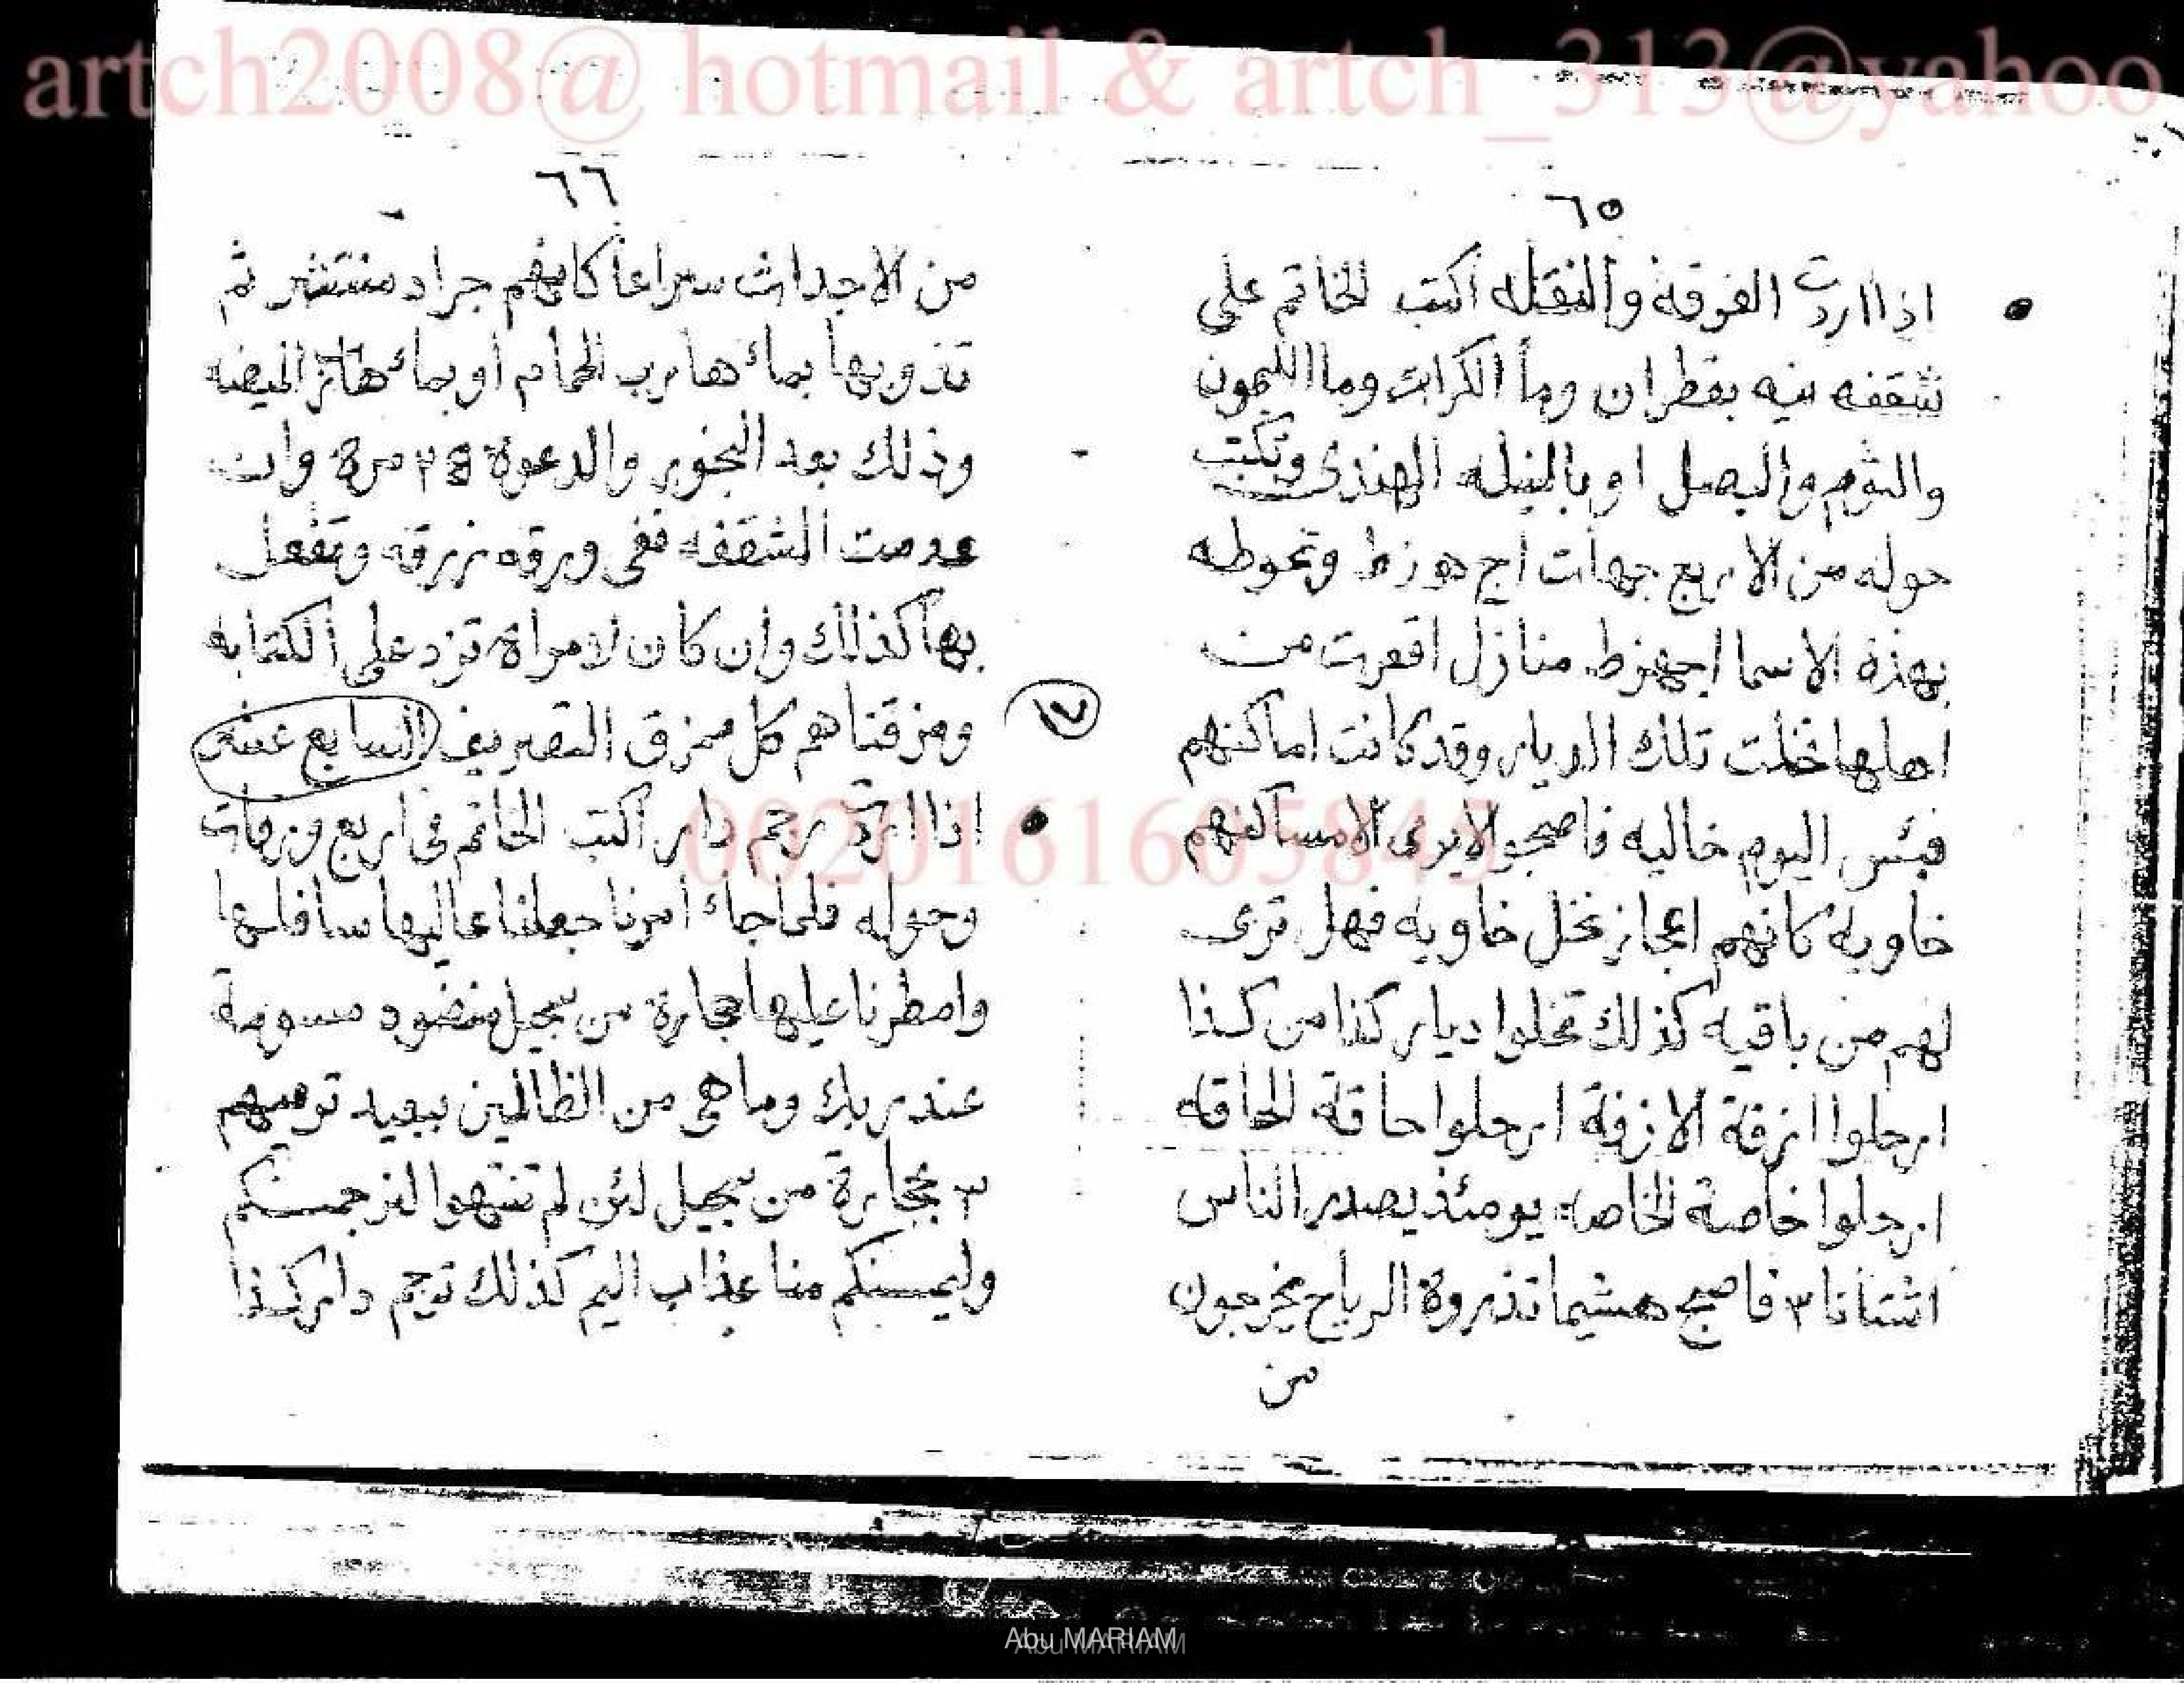 artch2008@ hotmail & artch_313@yahoo
٦٥
اذا اردت الفرقه والنقله اكتب الخاتم على
شقفه نيه بقطران ومأ الكرات وما الليمون
والثوم والبصل او بالنيله الهندى وتكتب
حوله من الاربع جهات اج هو زط وتحوطه
بهذه الاسما اجهزط منازل اقفرت من
اهلها خلت تلك الديار وقد كانت اماكنهم
فبئس اليوم خاليه فاصبحو الايرى الامساكنهم
خاويه كانهم اعجاز نخل خاويه فهل ترى
لهم من باقيه كذلك تخلوا ديار كذا من كذا
ارحلوا ازفة الازفة ارحلوا حاقة الحاقه
ارحلوا خاصة الخاصه يومئذ يصدر الناس
اشتاتا ٣ فاصبح هشيما تذروة الرياح يخرجون
من
٦٦
من الاجداث سراعا كانهم جراد منتشر ثم
تذوبها بماء هارب الحمام او بماء
وذلك بعد البخور والدعوة مرة وان
عدمت الشقفه ففى ورقه زرقه وتفعل
بها كذلك وان كان لامراة تزد على الكتابه
ومزقناهم كل ممزق التصريف السابع عشر
١٧
اذا اردت رجم دار اكتب الخاتم فى اربع ورقات
وحوله فلما جاء امرنا جعلنا عاليها سافلها
وامطرنا عليها حجارة من سجيل منضود مسومة
عند ربك وما هى من الظالمين ببعيد ترميهم
٣ بحجارة من سجيل لئن لم تنتهوا لنرجمنكم
وليمسنكم منا عذاب اليم كذلك ترجم دار كذا
0020161605845
Abu MARIAM